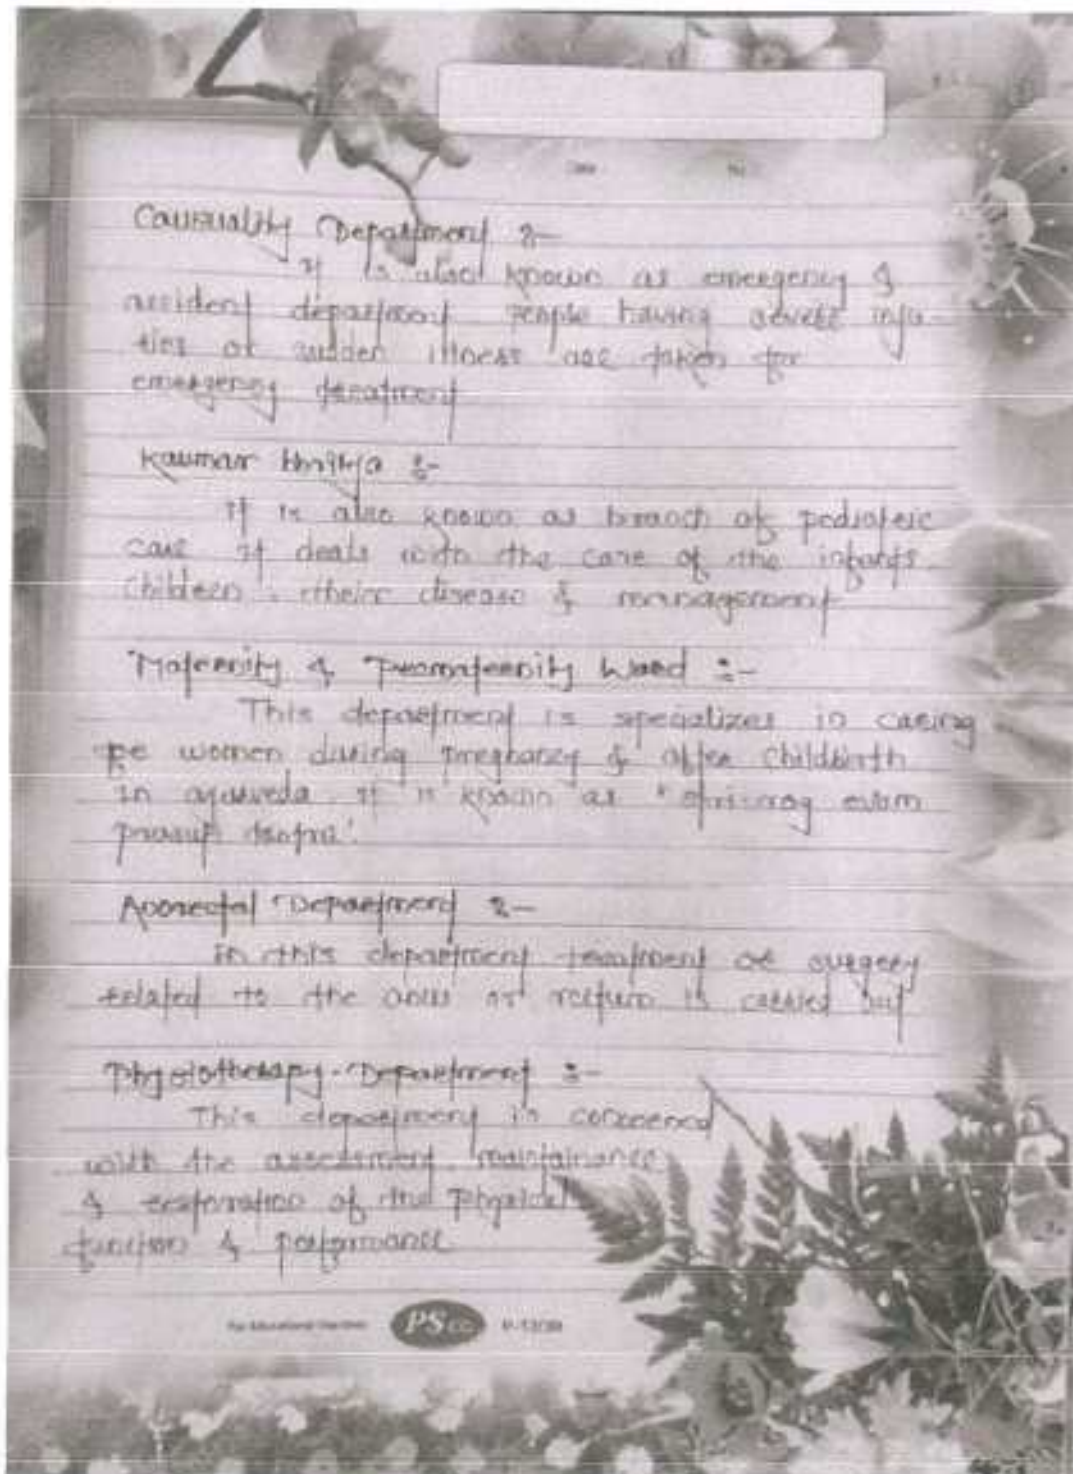 Date No
Causuality Department :-
It is also known as emergency &
accident department people having severe inju-
ries or sudden illness are taken for
emergency treatment
Kaumar bhritya :-
It is also known as branch of pediatric
care it deals with the care of the infants
children, their disease & management
Maternity & Ward :-
This department is specializes in caring
women during pregnancy & after childbirth
in ayurveda it is known as " evam
prasuti tantra'.
Anorectal Department :-
In this department treatment or surgery
related to the anus or rectum is carried out
Physiotherapy Department :-
This department is concerned
with the assessment, maintainance
& restoration of the physical
function & performance
For Educational Use Only PS